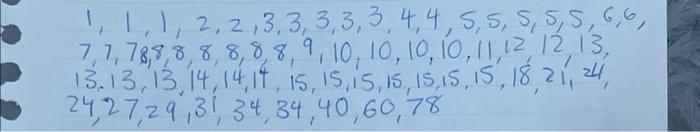 1, 1, 1, 2, 2, 3, 3, 3, 3, 3, 4, 4, 5, 5, 5, 5, 5, 6, 6,
7, 7, 7, 8, 8, 8, 8, 8, 8, 9, 10, 10, 10, 10, 11, 12, 12, 13,
13, 13, 13, 14, 14, 14, 15, 15, 15, 15, 15, 15, 15, 18, 21, 24,
24, 27, 29, 31, 34, 34, 40, 60, 78